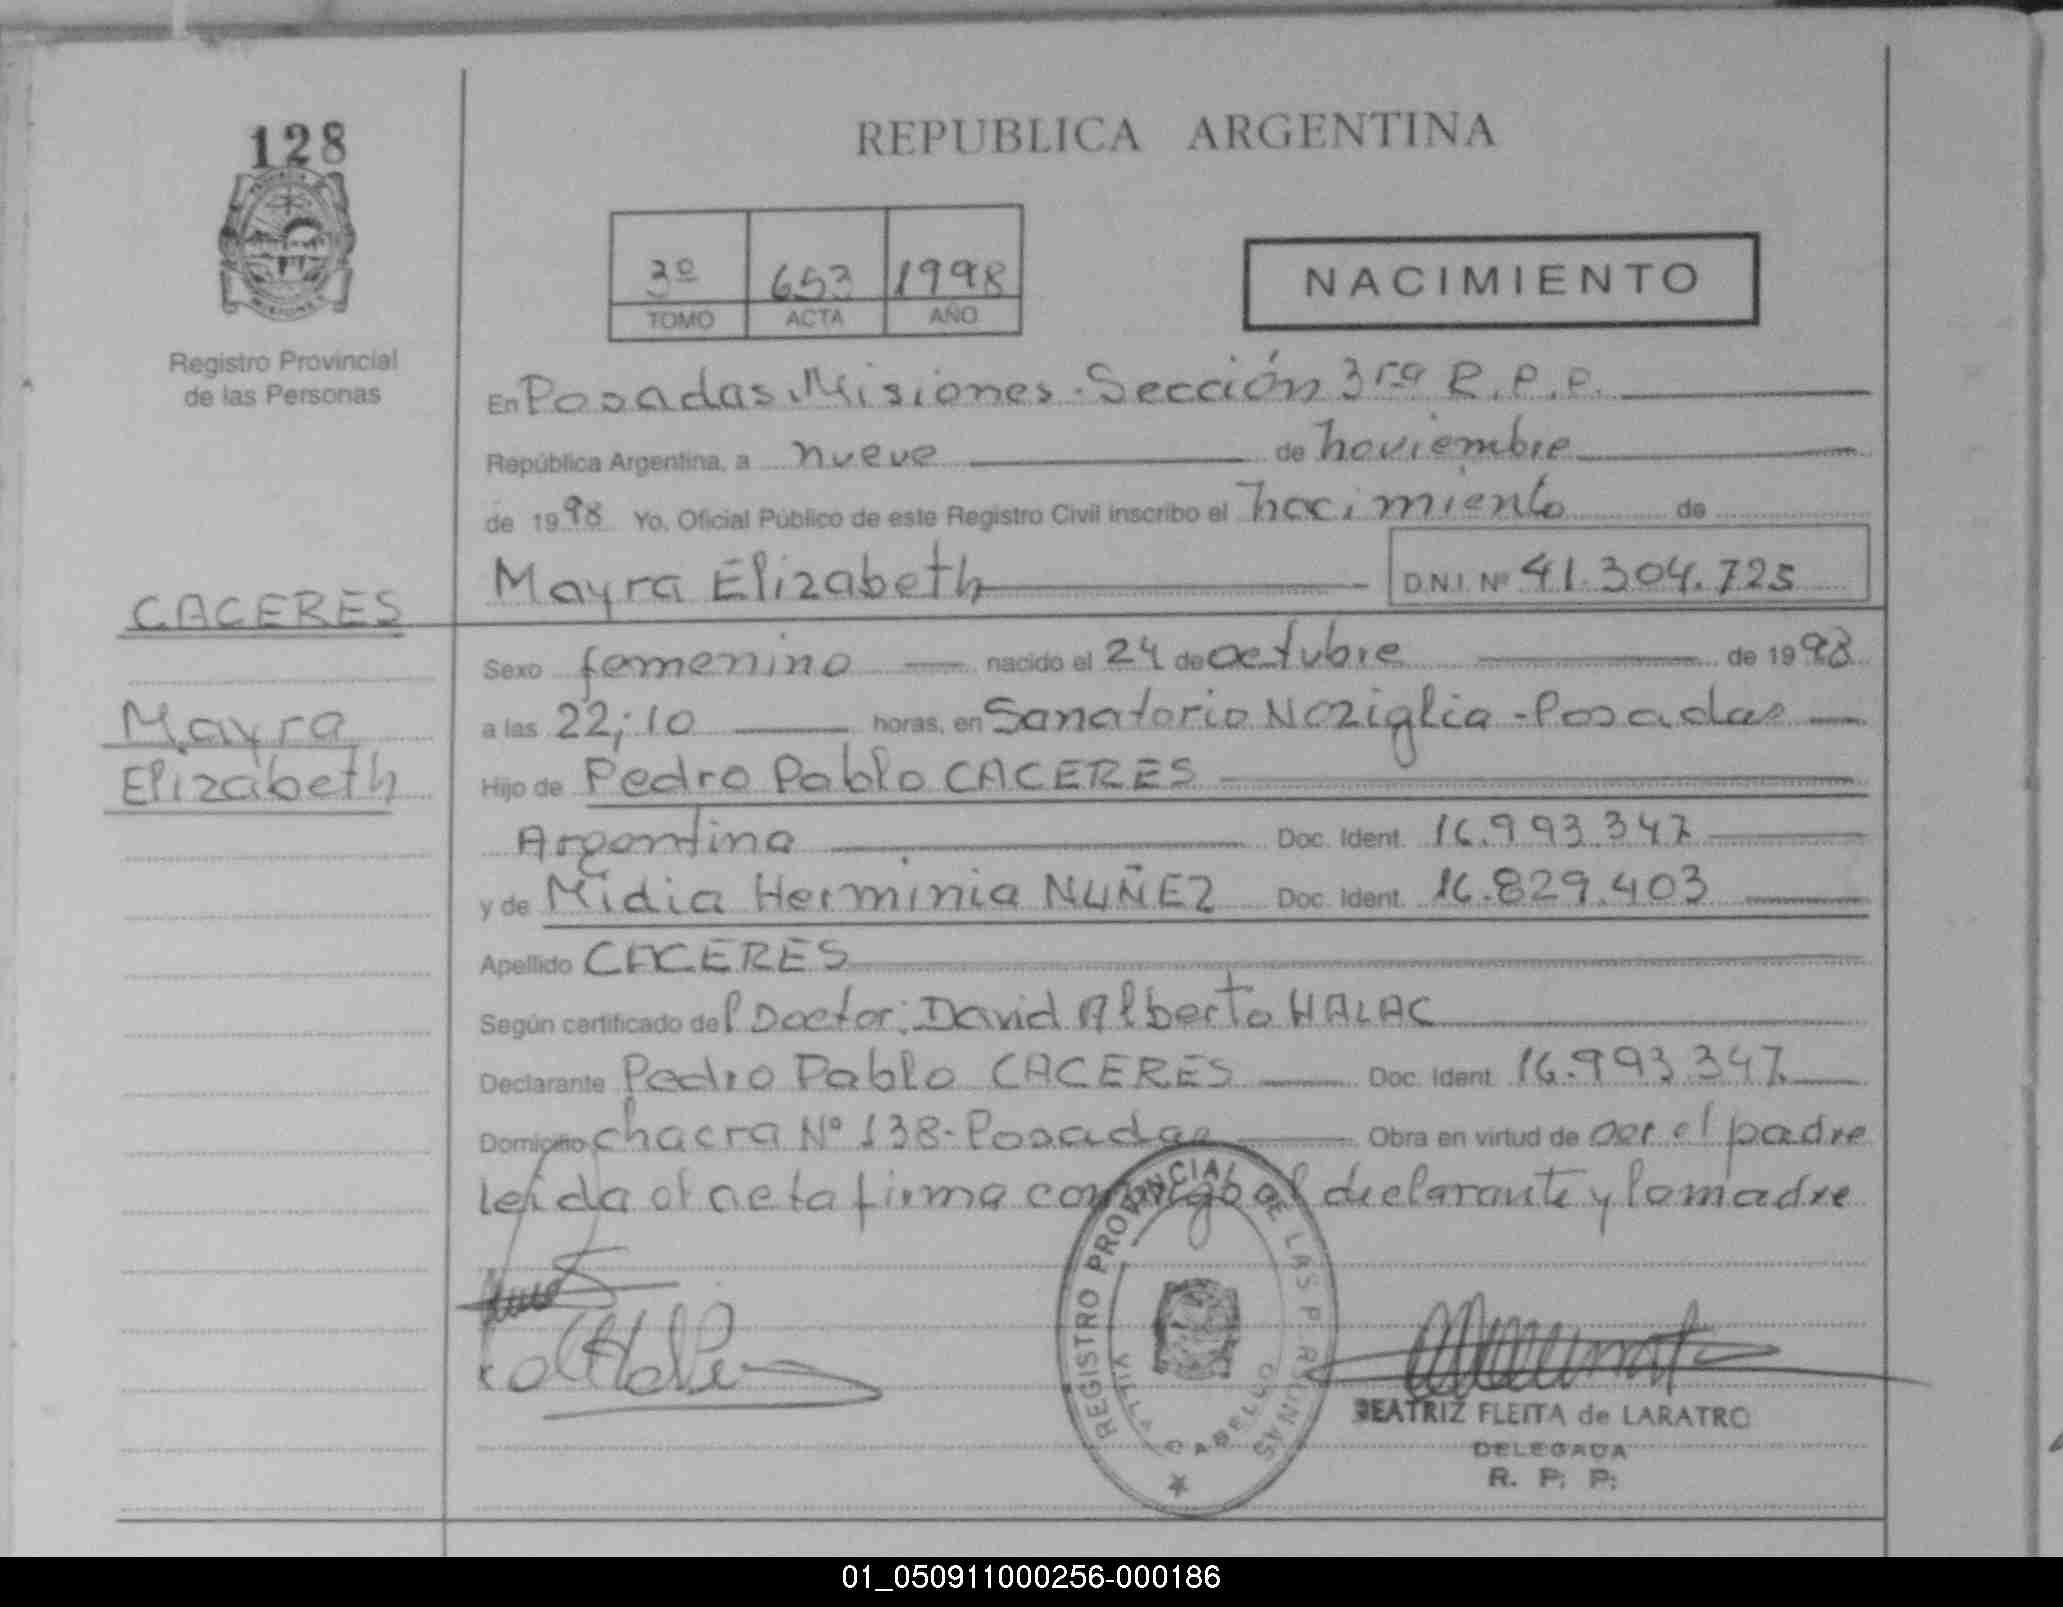 128
REPUBLICA ARGENTINA
3º 653 1998
TOMO ACTA AÑO
NACIMIENTO
Registro Provincial
de las Personas
En Posadas. Misiones. Sección 3ra R.P.P.
República Argentina, a nueve de noviembre
de 1998 Yo, Oficial Público de este Registro Civil inscribo el nacimiento de
Mayra Elizabeth D.N.I. Nº 41.304.725
CACERES
Mayra
Elizabeth
Sexo femenino nacido el 24 de octubre de 1998
a las 22;10 horas, en Sanatorio Noziglia - Posadas
Hijo de Pedro Pablo CACERES
Argentino Doc. Ident. 16.993.347
y de Midia Herminia NUÑEZ Doc. Ident. 16.829.403
Apellido CACERES
Según certificado del Doctor: David Alberto HALAC
Declarante Pedro Pablo CACERES Doc. Ident 16.993.347
Domicilio chacra Nº 138-Posadas Obra en virtud de ser el padre
leída el acta firma conmigo el declarante y la madre
REGISTRO PROVINCIAL DE LAS PERSONAS
VILLA CABELLO
BEATRIZ FLEITA de LARATRO
DELEGADA
R. P. P.
01_050911000256-000186